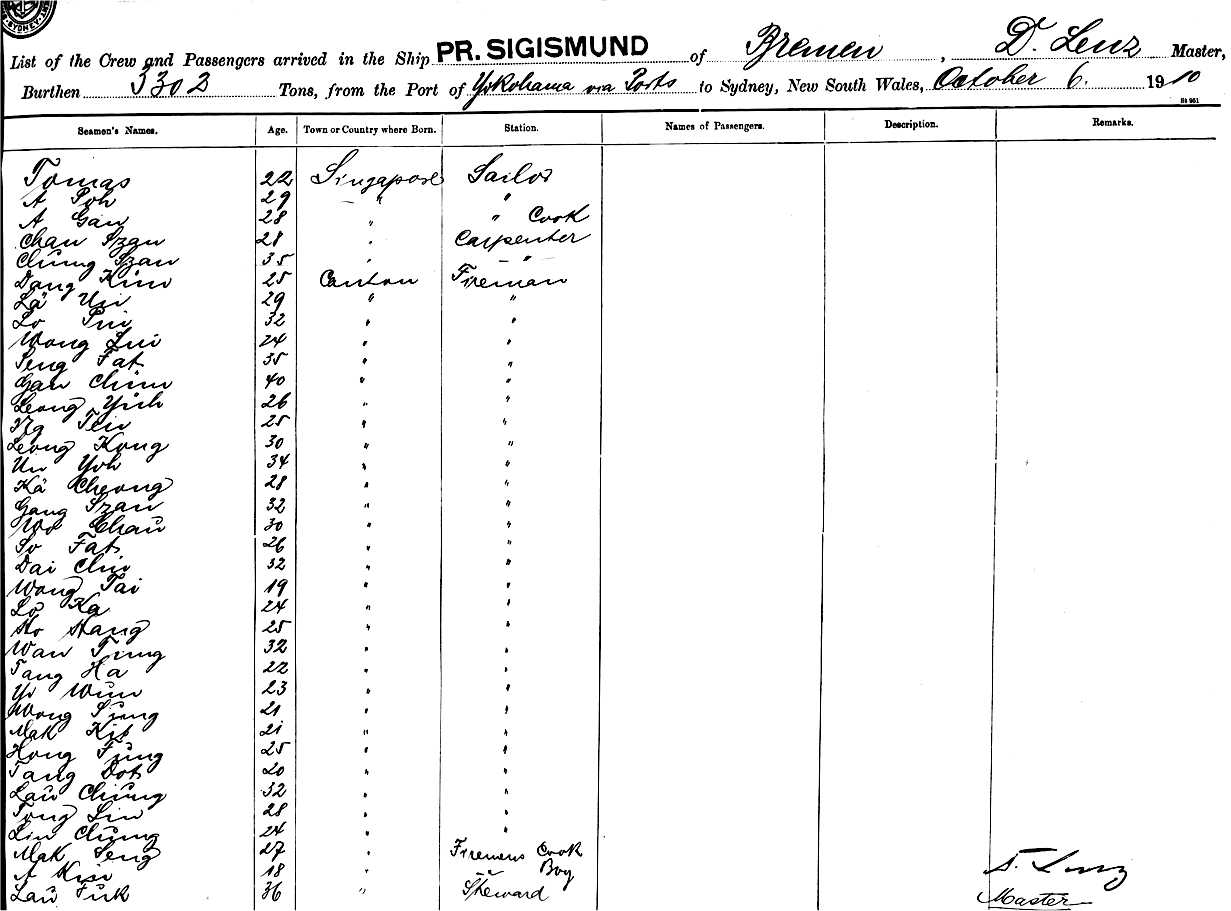 SYDNEY
List of the Crew and Passengers arrived in the Ship PR. SIGISMUND of Bremen, D. Lenz Master,
Burthen 3302 Tons, from the Port of Yokohama via Ports to Sydney, New South Wales, October 6. 1910
St 951
Seamen's Names. Age. Town or Country where Born. Station. Names of Passengers. Description. Remarks.
Tomas 22 Singapore Sailor
A Poh 29 " "
A Gan 28 " " Cook
Chan Szan 28 " Carpenter
Chung Szan 35 " "
Dang Kim 25 Canton Fireman
Lä 29 " "
Lo Pui 32 " "
Wong Lui 24 " "
Seng Fat 35 " "
Gan Chim 40 " "
Leong Yich 26 " "
Ng 25 " "
Leong Kong 30 " "
Un Yoh 34 " "
Kä Cheong 28 " "
Gang Szan 32 " "
Wo Chaŭ 30 " "
So Fat 26 " "
Dai Chin 32 " "
Wong Tai 19 " "
Lo Ka 24 " "
Ho Hang 25 " "
Wan Tŭng 32 " "
Tang Ha 22 " "
Yi Wŭn 23 " "
Wong Sŭng 21 " "
Mak Kip 21 " "
Hong Fŭng 25 " "
Tang Dot 20 " "
Laŭ Chŭng 32 " "
Tong Lin 28 " "
Lin Chŭng 24 " "
Mak Seng 27 " Firemens Cook
A 18 " " Boy
Laŭ Fŭk 36 " Steward
D. Lenz
Master